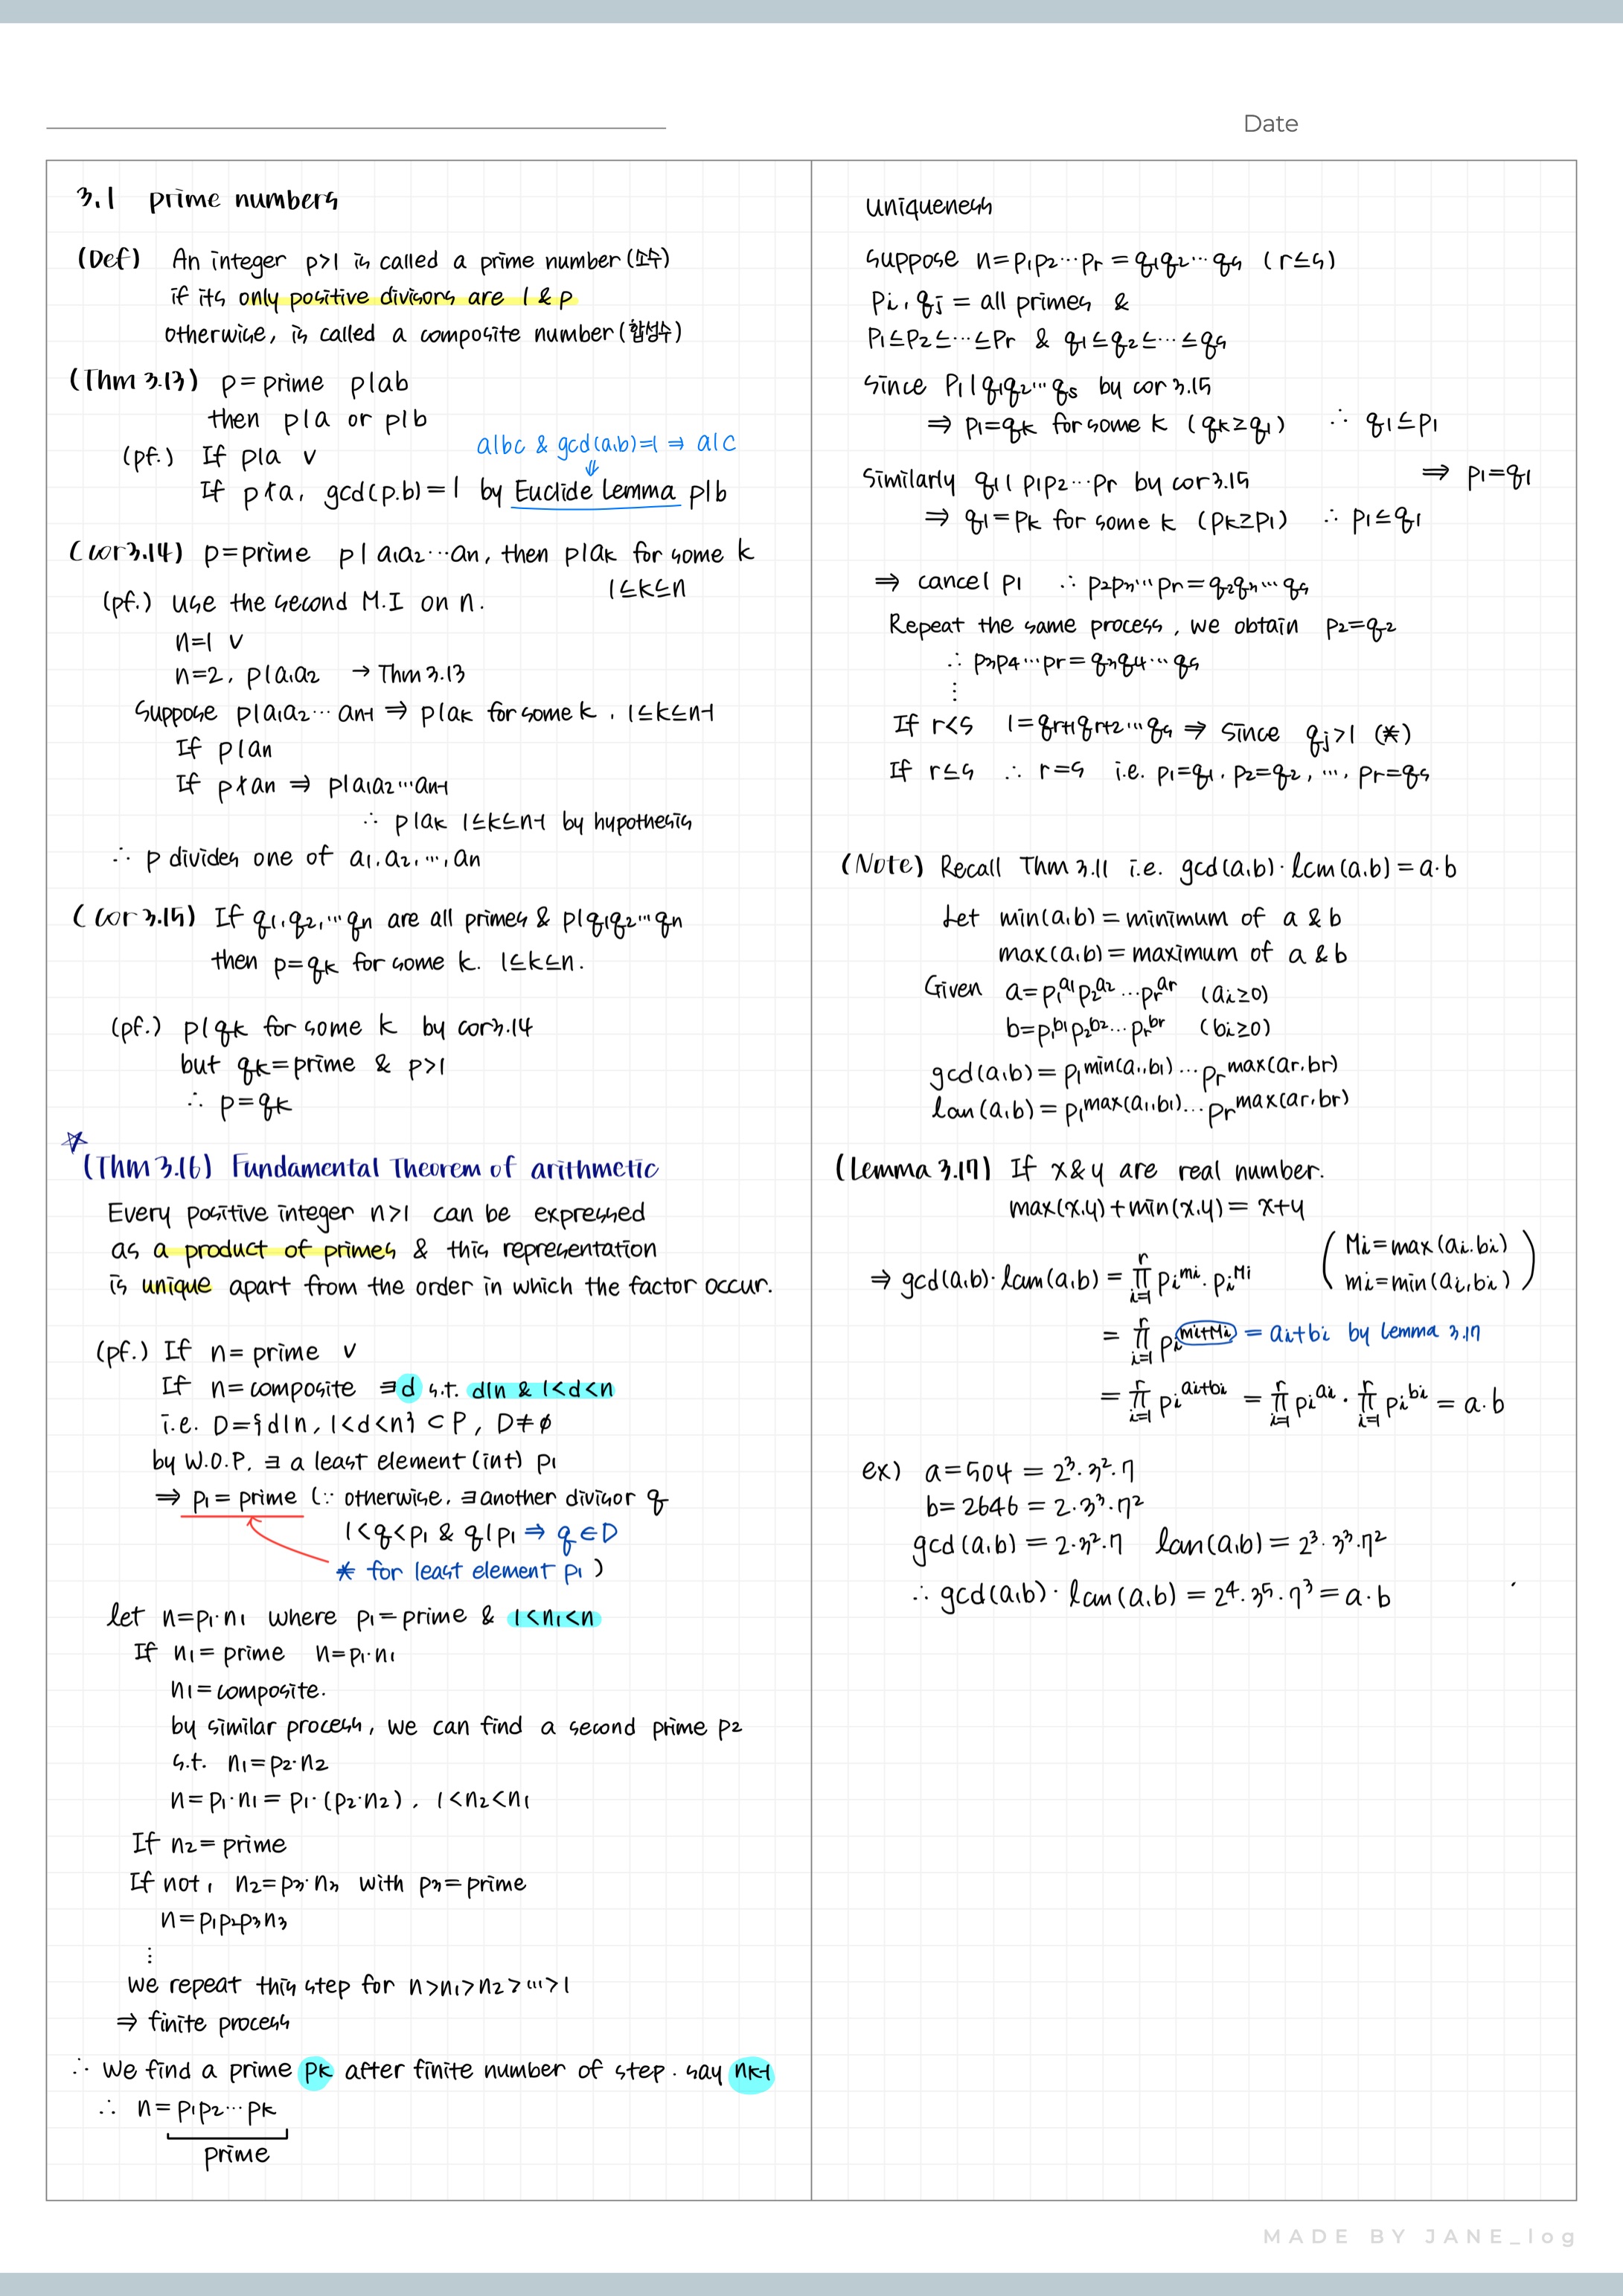 Date
3.1 prime numbers
(Def) An integer p>1 is called a prime number (소수)
if its only positive divisors are 1 & p
otherwise, is called a composite number (합성수)
(Thm 3.13) p=prime p|ab
then p|a or p|b
a|bc & gcd(a,b)=1 ⇒ a|c
(pf.) If p|a v
⇓
If p∤a, gcd(p.b)=1 by Euclide Lemma p|b
(cor 3.14) p=prime p|a₁a₂⋯an, then p|ak for some k
1≤k≤n
(pf.) use the second M.I on n.
n=1 v
n=2, p|a₁a₂ → Thm 3.13
Suppose p|a₁a₂⋯an-1 ⇒ p|ak for some k, 1≤k≤n-1
If p|an
If p∤an ⇒ p|a₁a₂⋯an-1
∴ p|ak 1≤k≤n-1 by hypothesis
∴ p divides one of a₁,a₂,⋯,an
(cor 3.15) If q₁,q₂,⋯qn are all primes & p|q₁q₂⋯qn
then p=qk for some k. 1≤k≤n.
(pf.) p|qk for some k by cor 3.14
but qk=prime & p>1
∴ p=qk
☆
(Thm 3.16) Fundamental Theorem of arithmetic
Every positive integer n>1 can be expressed
as a product of primes & this representation
is unique apart from the order in which the factor occur.
(pf.) If n=prime v
If n=composite ∃d s.t. d|n & 1<d<n
i.e. D={d|n, 1<d<n} ⊂ P, D≠∅
by W.O.P. ∃ a least element (int) p₁
⇒ p₁=prime (∵ otherwise, ∃another divisor q
1<q<p₁ & q|p₁ ⇒ q∈D
※ for least element p₁ )
let n=p₁·n₁ where p₁=prime & 1<n₁<n
If n₁=prime n=p₁·n₁
n₁=composite.
by similar process, we can find a second prime p₂
s.t. n₁=p₂·n₂
n=p₁·n₁=p₁·(p₂·n₂), 1<n₂<n₁
If n₂=prime
If not, n₂=p₃·n₃ with p₃=prime
n=p₁p₂p₃n₃
⋮
we repeat this step for n>n₁>n₂>⋯>1
⇒ finite process
∴ we find a prime pk after finite number of step. say nk-1
∴ n=p₁p₂⋯pk
prime
uniqueness
suppose n=p₁p₂⋯pr=q₁q₂⋯qs (r≤s)
pi, qj = all primes &
p₁≤p₂≤⋯≤pr & q₁≤q₂≤⋯≤qs
since p₁|q₁q₂⋯qs by cor 3.15
⇒ p₁=qk for some k (qk≥q₁) ∴ q₁≤p₁
Similarly q₁|p₁p₂⋯pr by cor 3.15 ⇒ p₁=q₁
⇒ q₁=pk for some k (pk≥p₁) ∴ p₁≤q₁
⇒ cancel p₁ ∴ p₂p₃⋯pr=q₂q₃⋯qs
Repeat the same process, we obtain p₂=q₂
∴ p₃p₄⋯pr=q₃q₄⋯qs
⋮
If r<s 1=qr+1qr+2⋯qs ⇒ since qj>1 (※)
If r≤s ∴ r=s i.e. p₁=q₁, p₂=q₂, ⋯, pr=qs
(Note) Recall Thm 3.11 i.e. gcd(a,b)·lcm(a,b)=a·b
Let min(a,b)=minimum of a & b
max(a,b)=maximum of a & b
Given a=p₁^a₁p₂^a₂⋯pr^ar (ai≥0)
b=p₁^b₁p₂^b₂⋯pr^br (bi≥0)
gcd(a,b)=p₁^min(a₁,b₁)⋯pr^max(ar,br)
lcm(a,b)=p₁^max(a₁,b₁)⋯pr^max(ar,br)
(Lemma 3.17) If x&y are real number.
max(x,y)+min(x,y)=x+y
⇒ gcd(a,b)·lcm(a,b)=∏(i=1→r) pi^mi·pi^Mi (Mi=max(ai,bi)
mi=min(ai,bi))
=∏(i=1→r) pi^mi+Mi = ai+bi by lemma 3.17
=∏(i=1→r) pi^ai+bi =∏(i=1→r) pi^ai·∏(i=1→r) pi^bi=a·b
ex) a=504=2³·3²·7
b=2646=2·3³·7²
gcd(a,b)=2·3²·7 lcm(a,b)=2³·3³·7²
∴ gcd(a,b)·lcm(a,b)=2⁴·3⁵·7³=a·b
MADE BY JANE_log